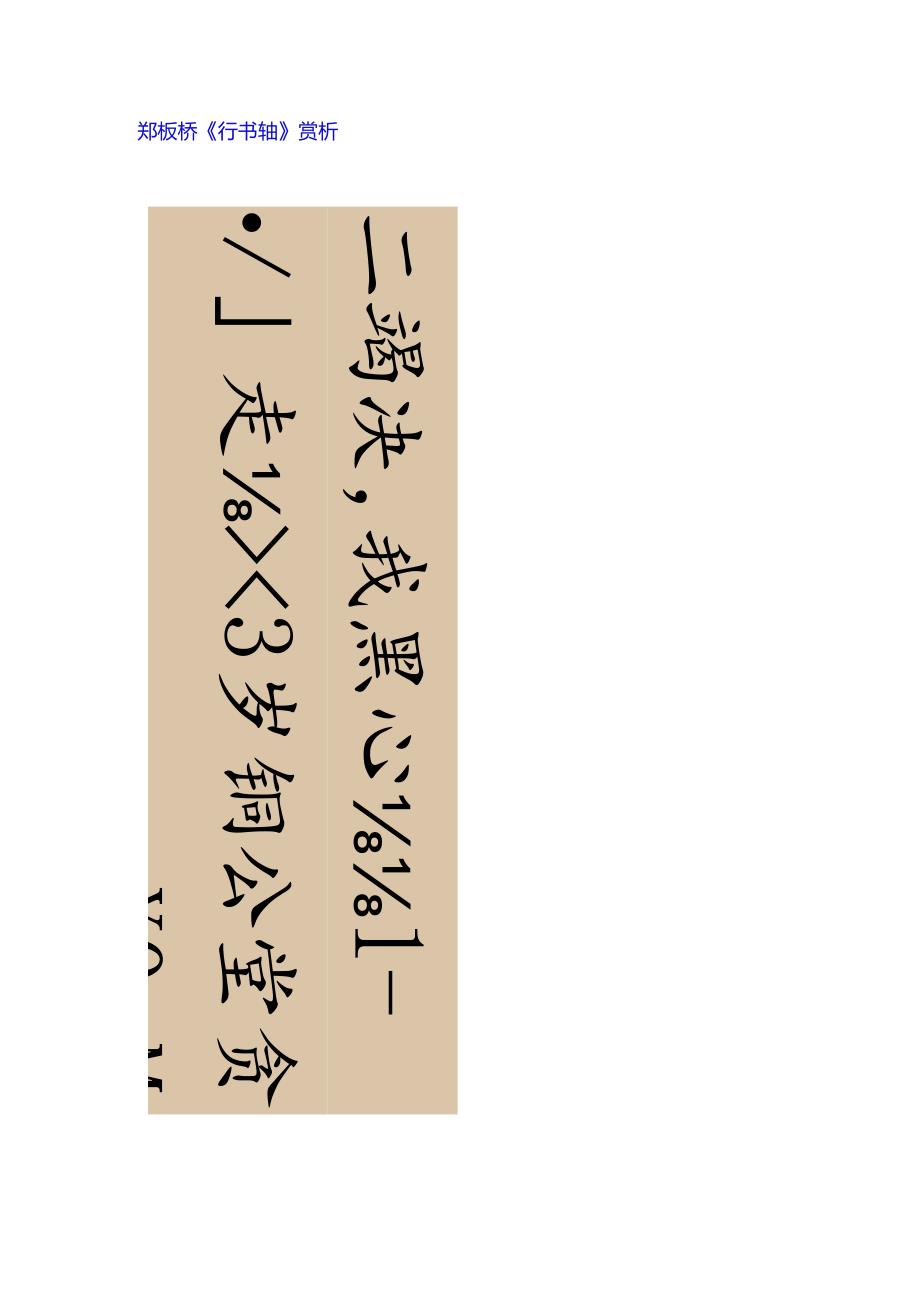 郑板桥《行书轴》赏析
二竭决，我黑心⅛⅛1—
•/」走⅛><3岁铜公堂贪